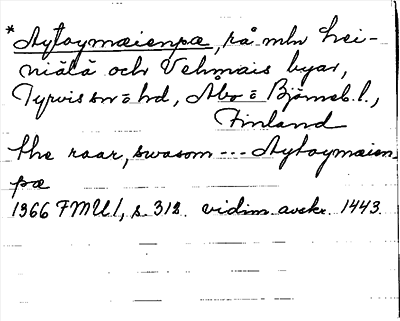 *Aytoymæienpæ, rå mln Hei-
niälä och Vehmais byar,
Tyrvis sn o hd, Åbo o Björneb. l.,
Finland
the raar, swasom --- Aytoymæien-
pæ
1366 FMU 1, s. 312. vidim. avskr. 1443.